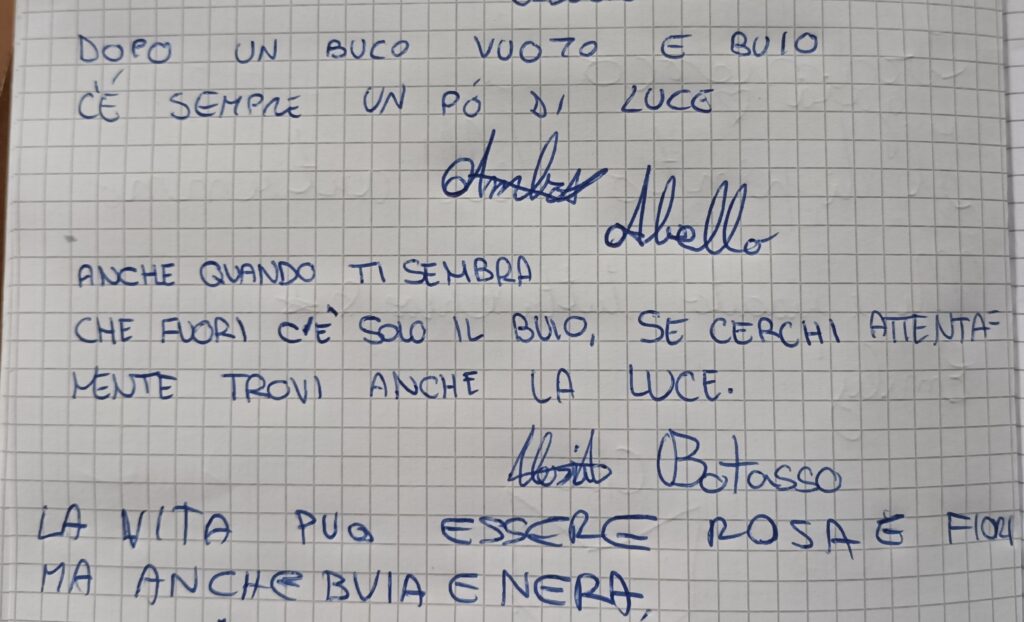 DOPO UN BUCO VUOTO E BUIO
C'É SEMPRE UN PÓ DI LUCE
Abello
ANCHE QUANDO TI SEMBRA
CHE FUORI C'È SOLO IL BUIO, SE CERCHI ATTENTA=
MENTE TROVI ANCHE LA LUCE.
Botasso
LA VITA PUO ESSERE ROSA E FIORI
MA ANCHE BUIA E NERA.